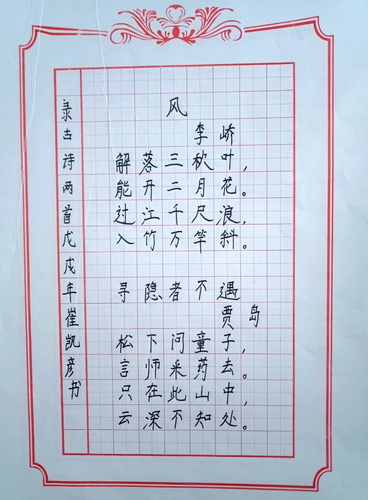 录古诗两首戊戌年崔凯彦书
风
李峤
解落三秋叶，
能开二月花。
过江千尺浪，
入竹万竿斜。
寻隐者不遇
贾岛
松下问童子，
言师采药去。
只在此山中，
云深不知处。